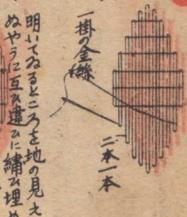 一掛の金絲
二本一本
明いてゐるところを地の見え
ぬやうに互ひ違ひに繍ひ埋め